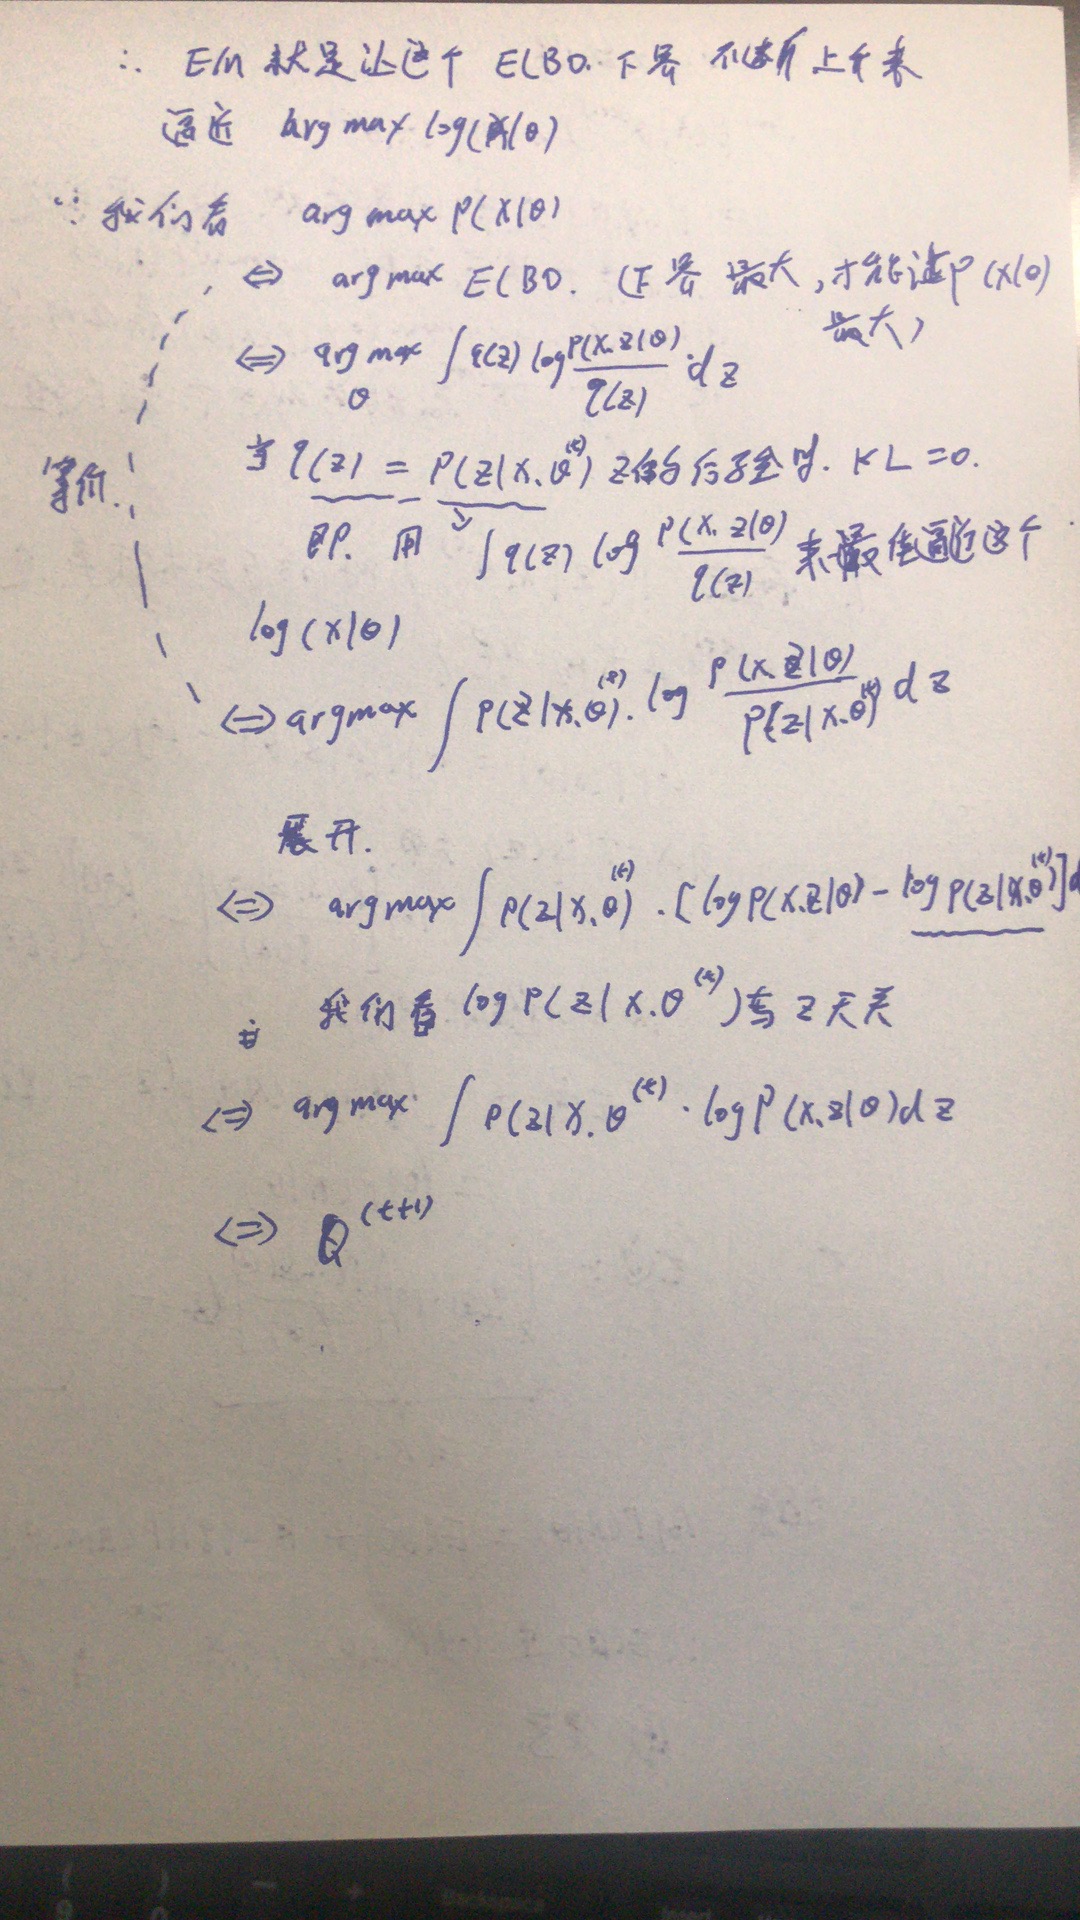 ∴ EM 就是让这个 ELBO. 下界 不断上升来
逼近 arg max log(X|θ)
∵ 我们看 arg max P(X|θ)
⇔ arg max ELBO. (下界 最大, 才能让P(X|θ)
最大)
⇔ arg max ∫ q(z) log P(X.Z|θ)/q(z) · dz
θ
等价.
当 q(z) = P(Z|X.θ^(t)) Z的后验 时. KL=0.
即. 用 ∫ q(z) log P(X.Z|θ)/q(z) 来最佳逼近这个
log(X|θ)
⇔ argmax ∫ P(Z|X.θ)^(t). log P(X.Z|θ)/P(Z|X.θ^(t)) dz
展开.
⇔ argmax ∫ P(Z|X.θ)^(t) · [log P(X.Z|θ) - log P(Z|X.θ^(t))] d
我们看 log P(Z|X.θ^(t)) 与 Z 无关
⇔ arg max ∫ P(Z|X.θ^(t) · log P(X.Z|θ) dz
⇔ θ^(t+1)